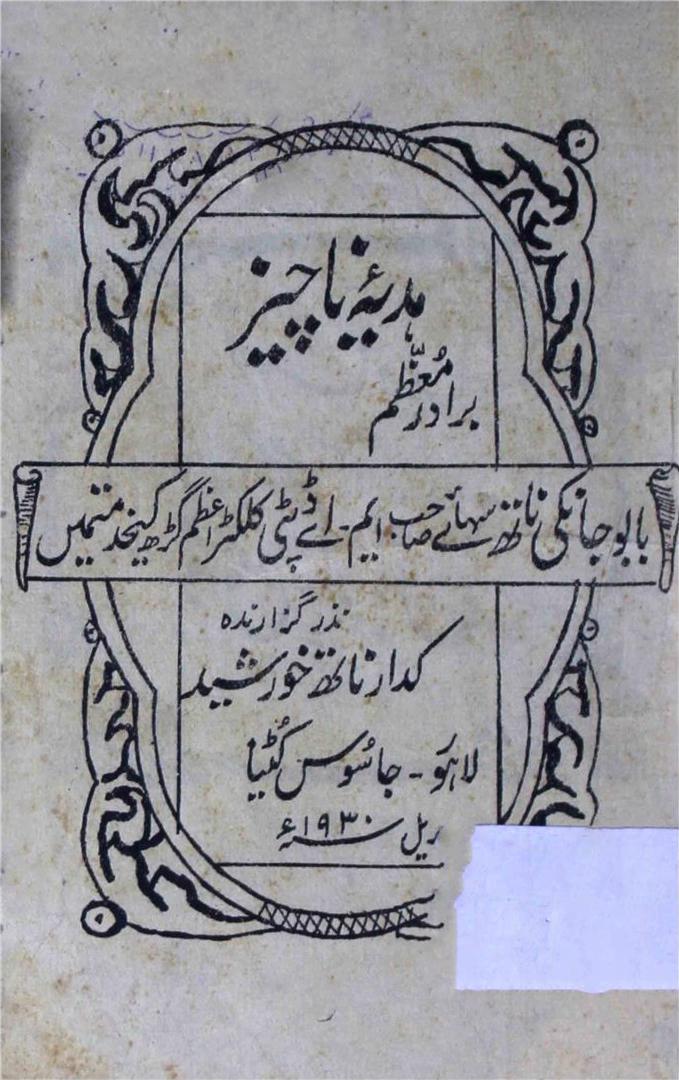 ہدیۂ ناچیز
برادر معظّم
بابو جانکی ناتھ سہائے صاحب ایم۔ اے ڈپٹی کلکٹر اعظم گڑھ کیخدمتمیں
نذر گزارندہ
کدار ناتھ خورشید
لاہور۔ جاسُوس کُٹیا
ریل سنہ ۱۹۳۰ء